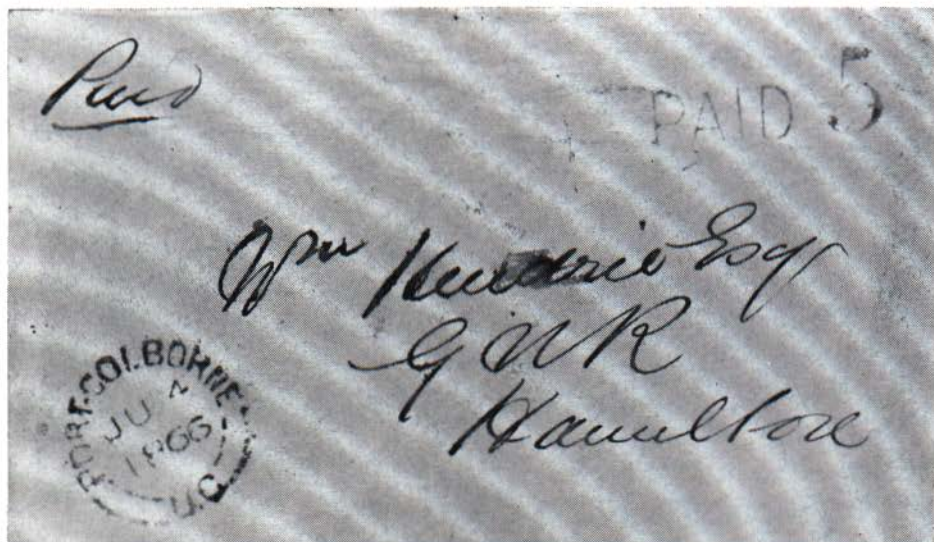 Paid
PAID 5
Wm Hendrie Esq
G W R
Hamilton
PORT-COLBORNE
JU 4
1866
U.C